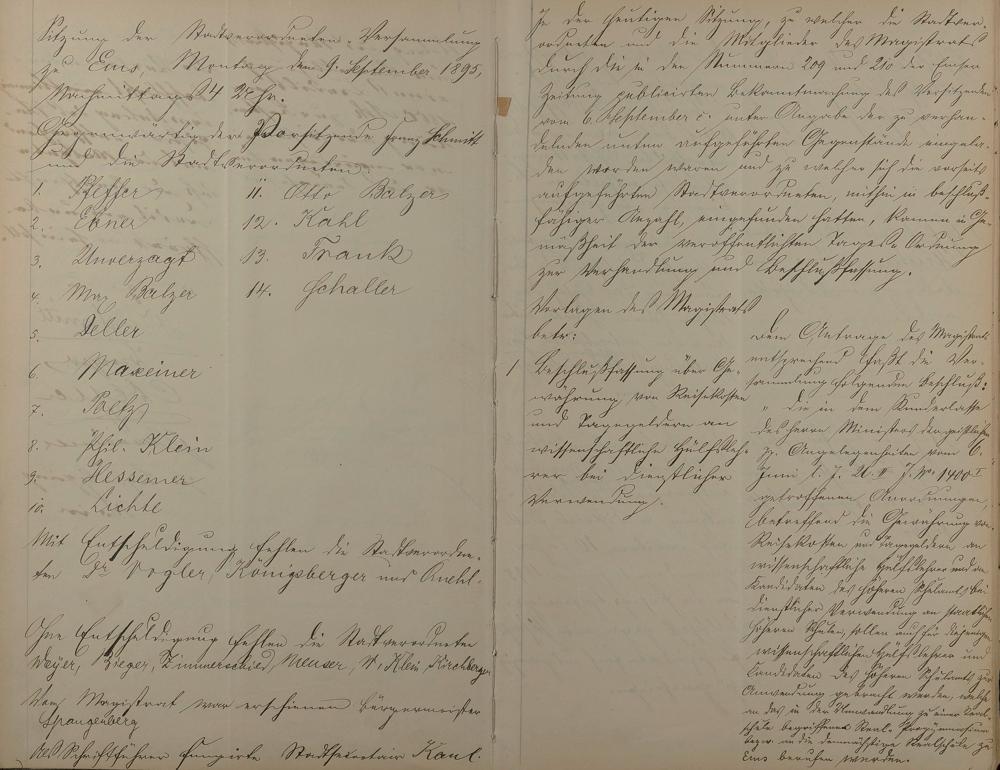 Sitzung der Stadtverordneten-Versammlung
zu Ems, Montag den 9. September 1895,
Nachmittags 4 Uhr.
Gegenwärtig der Vorsitzende Franz Schmitt
und die Stadtverordneten:
1. Pfeffer
2. Ebner
3. Unverzagt
4. Max Balzer
5. Heller
6. Maxeiner
7. Poetz
8. Phil. Klein
9. Hessemer
10. Lichte
11. Otto Balzer
12. Kahl
13. Frank
14. Schaller
Mit Entschuldigung fehlen die Stadtverordne-
ten Dr. Vogler, Königsberger und
Ohne Entschuldigung fehlen die Stadtverordneten
Weyer, Rieger, Zimmerschied, Meuser, W. Klein, Kirchberger
Vom Magistrat war erschienen Bürgermeister
Spangenberg
Als Schriftführer fungirte Stadtsecretair Kaul.
In der heutigen Sitzung, zu welcher die Stadtver-
ordneten und die Mitglieder des Magistrats
durch die in den Nummern 209 und 210 der Emser
Zeitung publicirten Bekanntmachung des Vorsitzenden
vom 6. September c. unter Angabe der zu verhan-
delnden unten aufgeführten Gegenstände eingela-
den worden waren und zu welcher sich die vorseits
aufgeführten Stadtverordneten, mithin in beschluß-
fähiger Anzahl, eingefunden hatten, kamen in Ge-
mäßheit der veröffentlichten Tages-Ordnung
zur Verhandlung und Beschlußfassung.
Vorlagen des Magistrats
betr:
1 Beschlußfassung über Ge-
währung von Reisekosten
und Tagegeldern an
wissenschaftliche Hülfsleh-
rer bei dienstlicher
Verwendung.
Dem Antrage des Magistrats
entsprechend faßt die Ver-
sammlung folgenden Beschluß:
" Die in dem Runderlasse
des Herrn Ministers der geistlichen
pp. Angelegenheiten vom 6.
Juni l. J. U. II J. No. 1400 I
getroffenen Anordnungen
betreffend die Gewährung von
Reisekosten und Tagegeldern an
wissenschaftliche Hülfslehrer und an
Kandidaten des höheren Schulamts bei
dienstlicher Verwendung an staatlichen
höheren Schulen, sollen auch für diejenigen
wissenschaftlichen Hülfslehrer und
Kandidaten des höheren Schulamts zur
Anwendung gebracht werden, welche
an das in der Umwandlung zu einer Real-
schule begriffene Real-Progymnasium
bezw. an die demnächstige Realschule zu
Ems berufen werden.